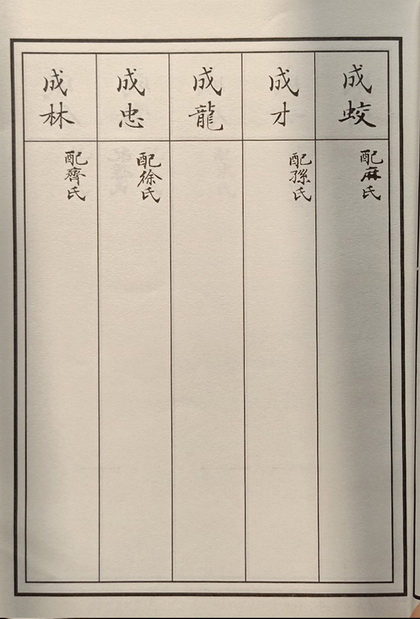 成蛟
配麻氏
成才
配孫氏
成龍
成忠
配徐氏
成林
配齊氏